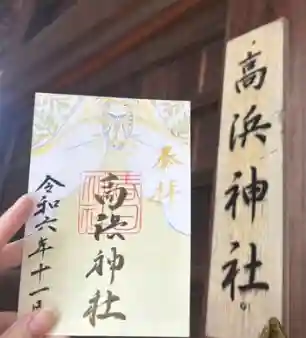 奉拝
高浜神社
令和六年十一月
高浜神社